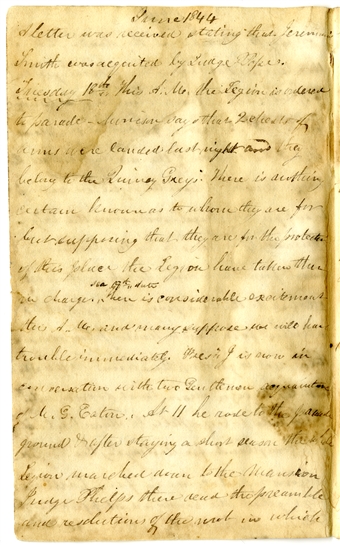 June 1844
A letter was received stating that Jeremiah
Smith was acquited by Judge Pope.
Tuesday 18th This A. M. the Legion is ordered
to parade - American say other 2 chests of
arms were landed last night and they
belong to the Quincy Greys. There is nothing
certain known as to whom they are for
but supposing that they are for the protection
of this place the Legion have taken them
see 17th date
in charge. There is considerable excitement
this A. M. and many suppose we will have
trouble immediately. Pres J is now in
conversation with two Gentlemen
M. G. Eaton. At 11 he rode to the parade
ground & after staying a short season the
Legion marched down to the Mansion
Judge Phelps there read the preamble
and resolutions of the mob in which